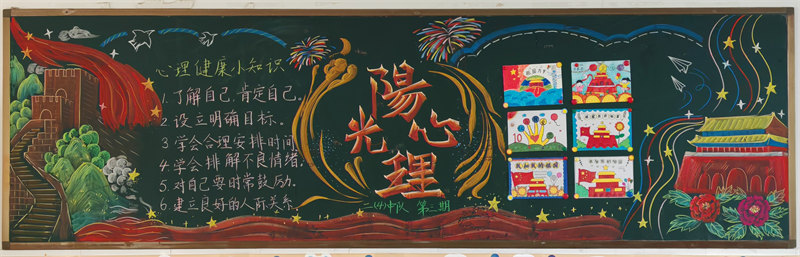 心理健康小知识
1.了解自己,肯定自己。
2.设立明确目标。
3.学会合理安排时间
4.学会排解不良情绪.
5.对自己要时常鼓励.
6.建立良好的人际关系
陽光心理
二(4)中队 第二期
我和我的祖国